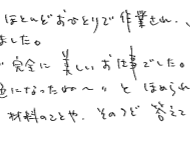 ほとんどおひとりで作業され、
ました。
完全に美しいお仕事でした。
になったわ〜いとほめられ
材料のことや、そのつど答えて